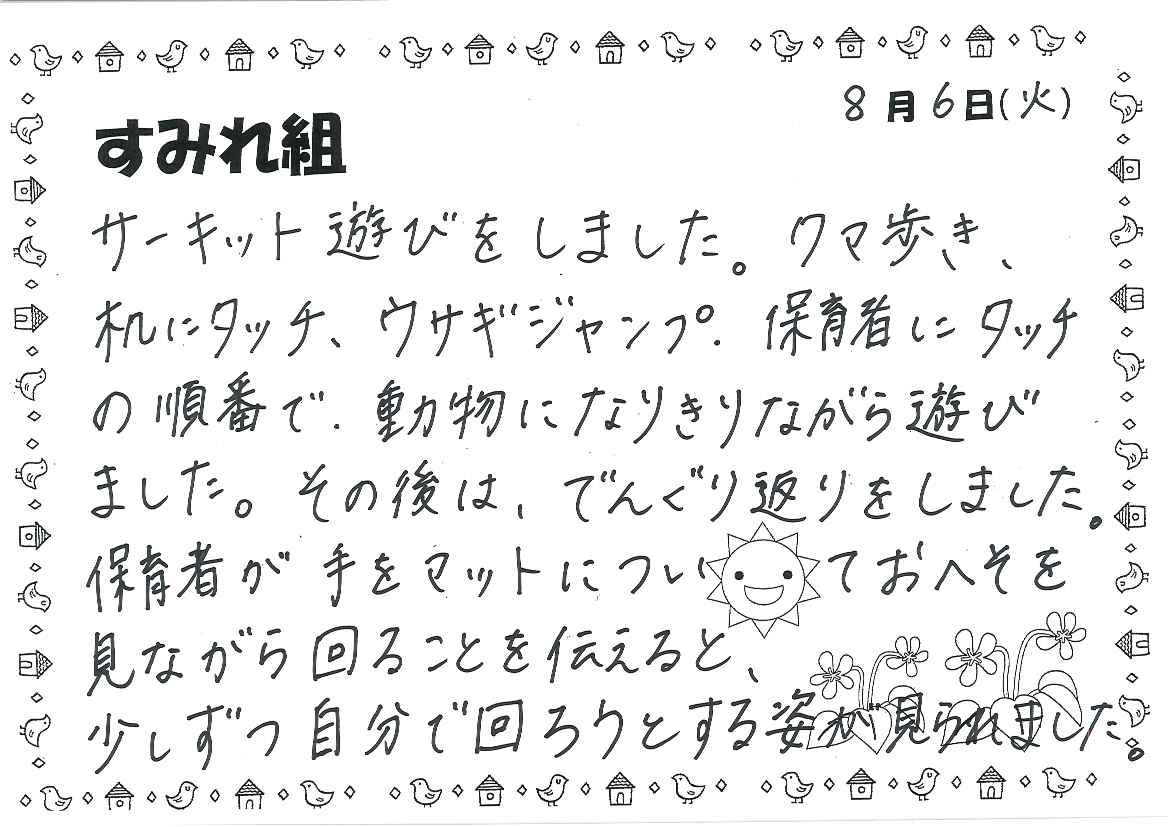 8月6日(火)
すみれ組
サーキット遊びをしました。クマ歩き、
机にタッチ、ウサギジャンプ、保育者にタッチ
の順番で、動物になりきりながら遊び
ました。その後は、でんぐり返りをしました。
保育者が手をマットについておへそを
見ながら回ることを伝えると、
少しずつ自分で回ろうとする姿が見られました。